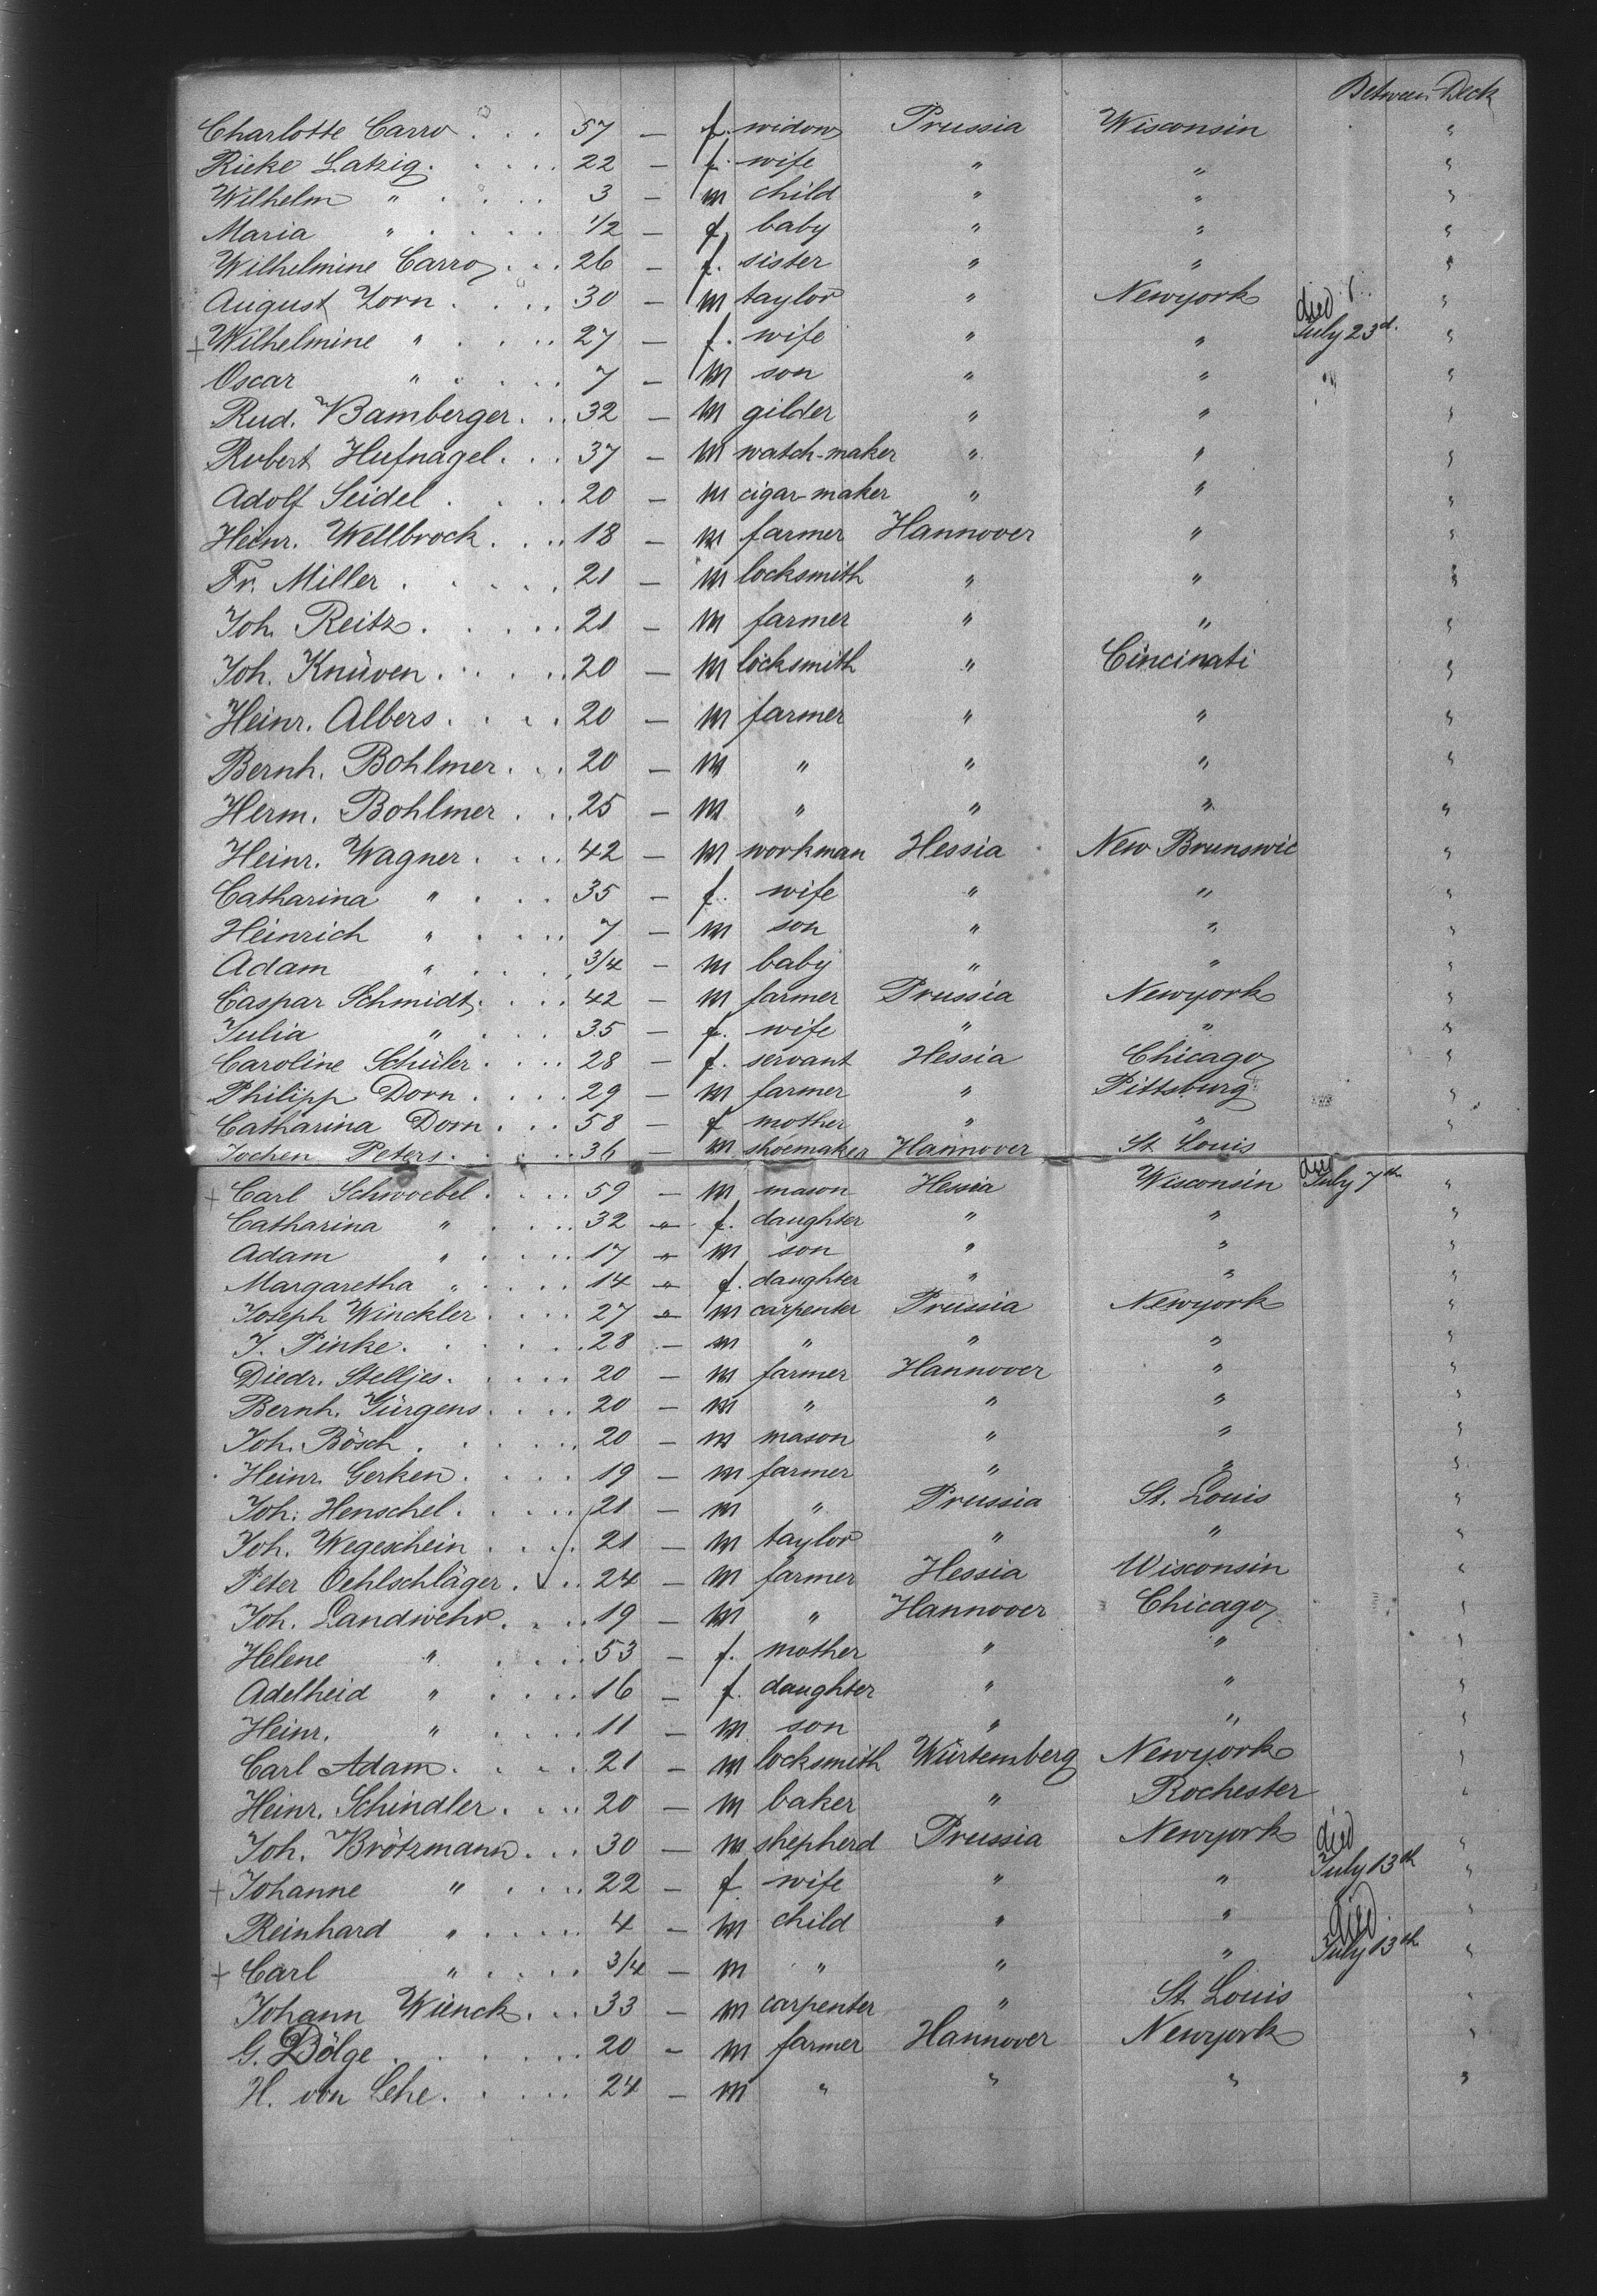 Between Deck
Charlotte Carro . . . 57 — f. widow Prussia Wisconsin "
Rieke Latzig . . . . . 22 — f. wife " " "
Wilhelm " . . . . 3 — m child " " "
Maria " . . . . . 1/2 — f. baby " " "
Wilhelmine Carro . . . 26 — f. sister " " "
August Zorn . . . . 30 — m taylor " Newyork "
+ Wilhelmine " . . . . 27 — f. wife " " died July 23d. "
Oscar " . . . . 7 — m son " " " "
Rud. Bamberger . . . 32 — m gilder " " "
Robert Hufnagel . . . 37 — m watch-maker " " "
Adolf Seidel . . . . 20 — m cigar-maker " " "
Heinr. Wellbrock . . . . 18 — m farmer Hannover " "
Fr. Miller . . . . . 21 — m locksmith " " "
Joh. Reitz . . . . . 21 — m farmer " " "
Joh. Knüven . . . . . 20 — m locksmith " Cincinati "
Heinr. Albers . . . . 20 — m farmer " " "
Bernh. Bohlmer . . . 20 — m " " " "
Herm. Bohlmer . . . 25 — m " " " "
Heinr. Wagner . . . . 42 — m workman Hessia New Brunswic "
Catharina " . . . 35 — f. wife " " "
Heinrich " . . . . 7 — m son " " "
Adam " . . . . 3/4 — m baby " " "
Caspar Schmidt . . . . 42 — m farmer Prussia Newyork "
Julia " . . . 35 — f. wife " " "
Caroline Schüler . . . . 28 — f. servant Hessia Chicago "
Philipp Dorn . . . . 29 — m farmer " Pittsburg "
Catharina Dorn . . . 58 — f mother " " "
Jochen Peters . . . . . 36 — m shoemaker Hannover St Louis
+ Carl Schwoebel . . . . 59 — m mason Hessia Wisconsin died July 7th "
Catharina " . . . . 32 — f. daughter " " "
Adam " . . . . 17 — m son " " "
Margaretha " . . . . 14 — f. daughter " " "
Joseph Winckler . . . . 27 — m carpenter Prussia Newyork "
J. Pinke . . . . . . 28 — m " " " "
Diedr. Stelljes . . . . . 20 — m farmer Hannover " "
Bernh. Jürgens . . . . 20 — m " " " "
Joh. Bösch . . . . . 20 — m mason " " "
Heinr. Gerken . . . . 19 — m farmer " " "
Joh. Henschel . . . . . 21 — m " Prussia St. Louis "
Joh. Wegeschein . . . . 21 — m taylor " " "
Peter Oehlschläger . . . 24 — m farmer Hessia Wisconsin "
Joh. Landwehr . . . . 19 — m " Hannover Chicago "
Helene " . . . . 53 — f. mother " " "
Adelheid " . . . . 16 — f. daughter " " "
Heinr. " . . . . 11 — m son " " "
Carl Adam . . . . 21 — m locksmith Würtemberg Newyork "
Heinr. Schindler . . . . 20 — m baker " Rochester "
Joh. Brötzmann . . . 30 — m shepherd Prussia Newyork "
+ Johanne " . . . . 22 — f. wife " " died July 13th "
Reinhard " . . . . . 4 — m child " " "
+ Carl " . . . . . 3/4 — m " " " died July 13th "
Johann Wienck . . . 33 — m carpenter " St Louis "
G. Dölge . . . . . . 20 — m farmer Hannover Newyork "
H. von Lehe . . . . . 24 — m " " " "